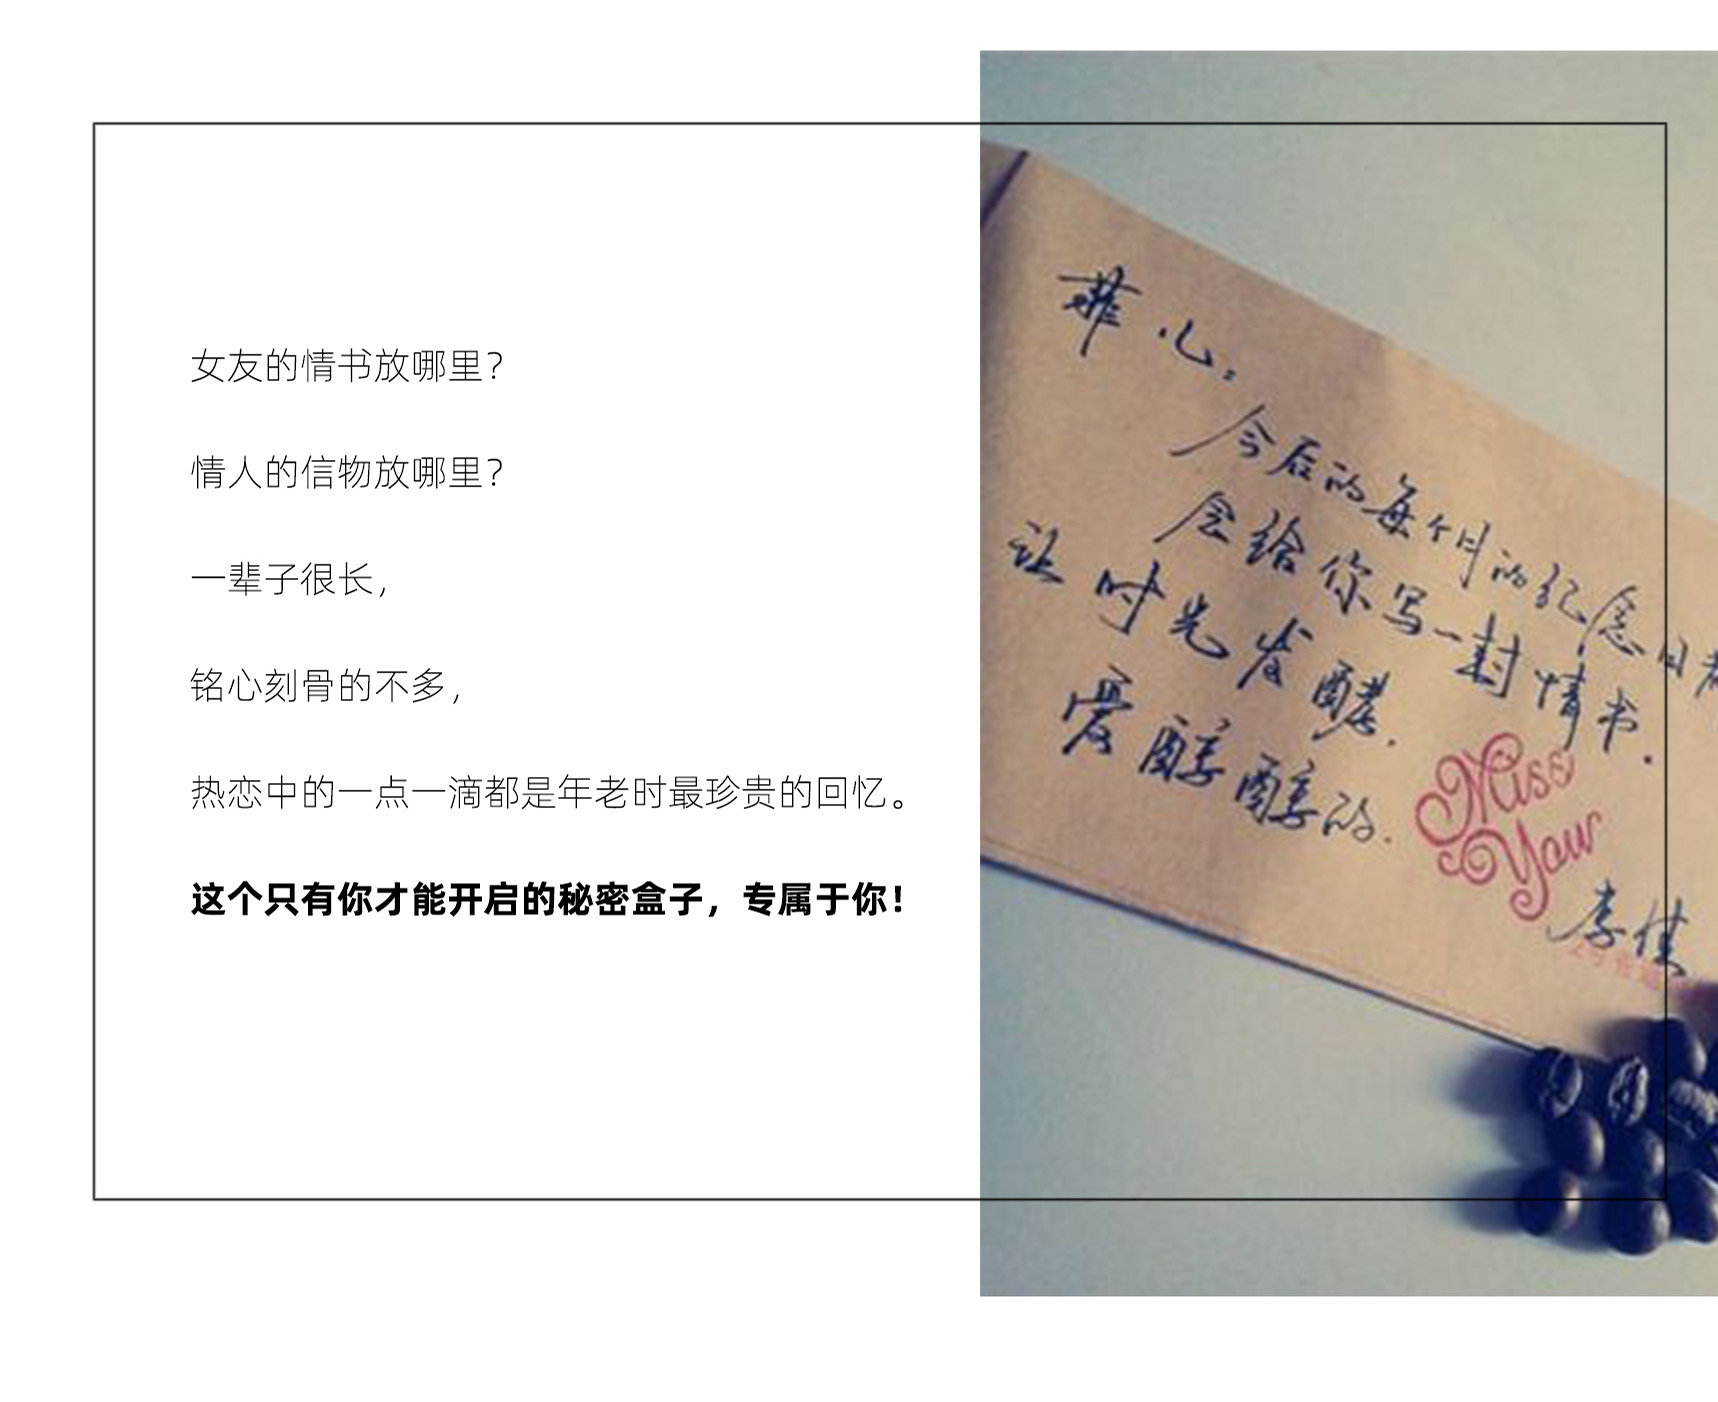 女友的情书放哪里？
情人的信物放哪里？
一辈子很长，
铭心刻骨的不多，
热恋中的一点一滴都是年老时最珍贵的回忆。
这个只有你才能开启的秘密盒子，专属于你！
菲心：
今后的每个月的纪念日都
会给你写一封情书.
让时光发醾.
爱醇醇的.
Miss
You
李佳